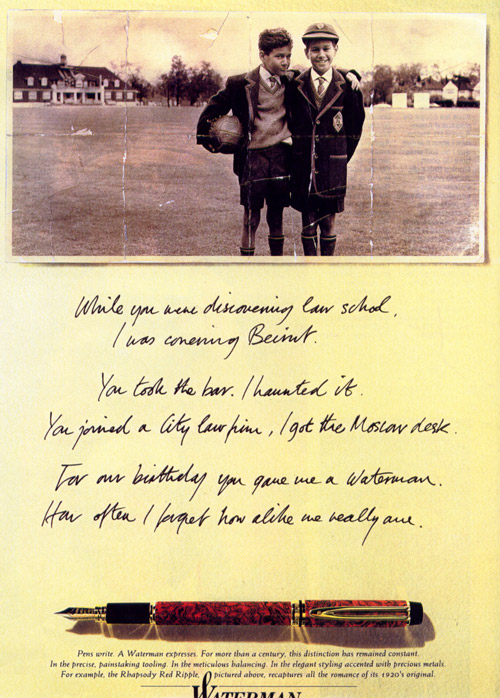 While you were discovering law school,
I was covering Beirut.
You took the bar. I haunted it.
You joined a City law firm, I got the Moscow desk.
For our birthday you gave me a Waterman.
How often I forget how alike we really are.
Pens write. A Waterman expresses. For more than a century, this distinction has remained constant.
In the precise, painstaking tooling. In the meticulous balancing. In the elegant styling accented with precious metals.
For example, the Rhapsody Red Ripple, pictured above, recaptures all the romance of its 1920's original.
WATERMAN